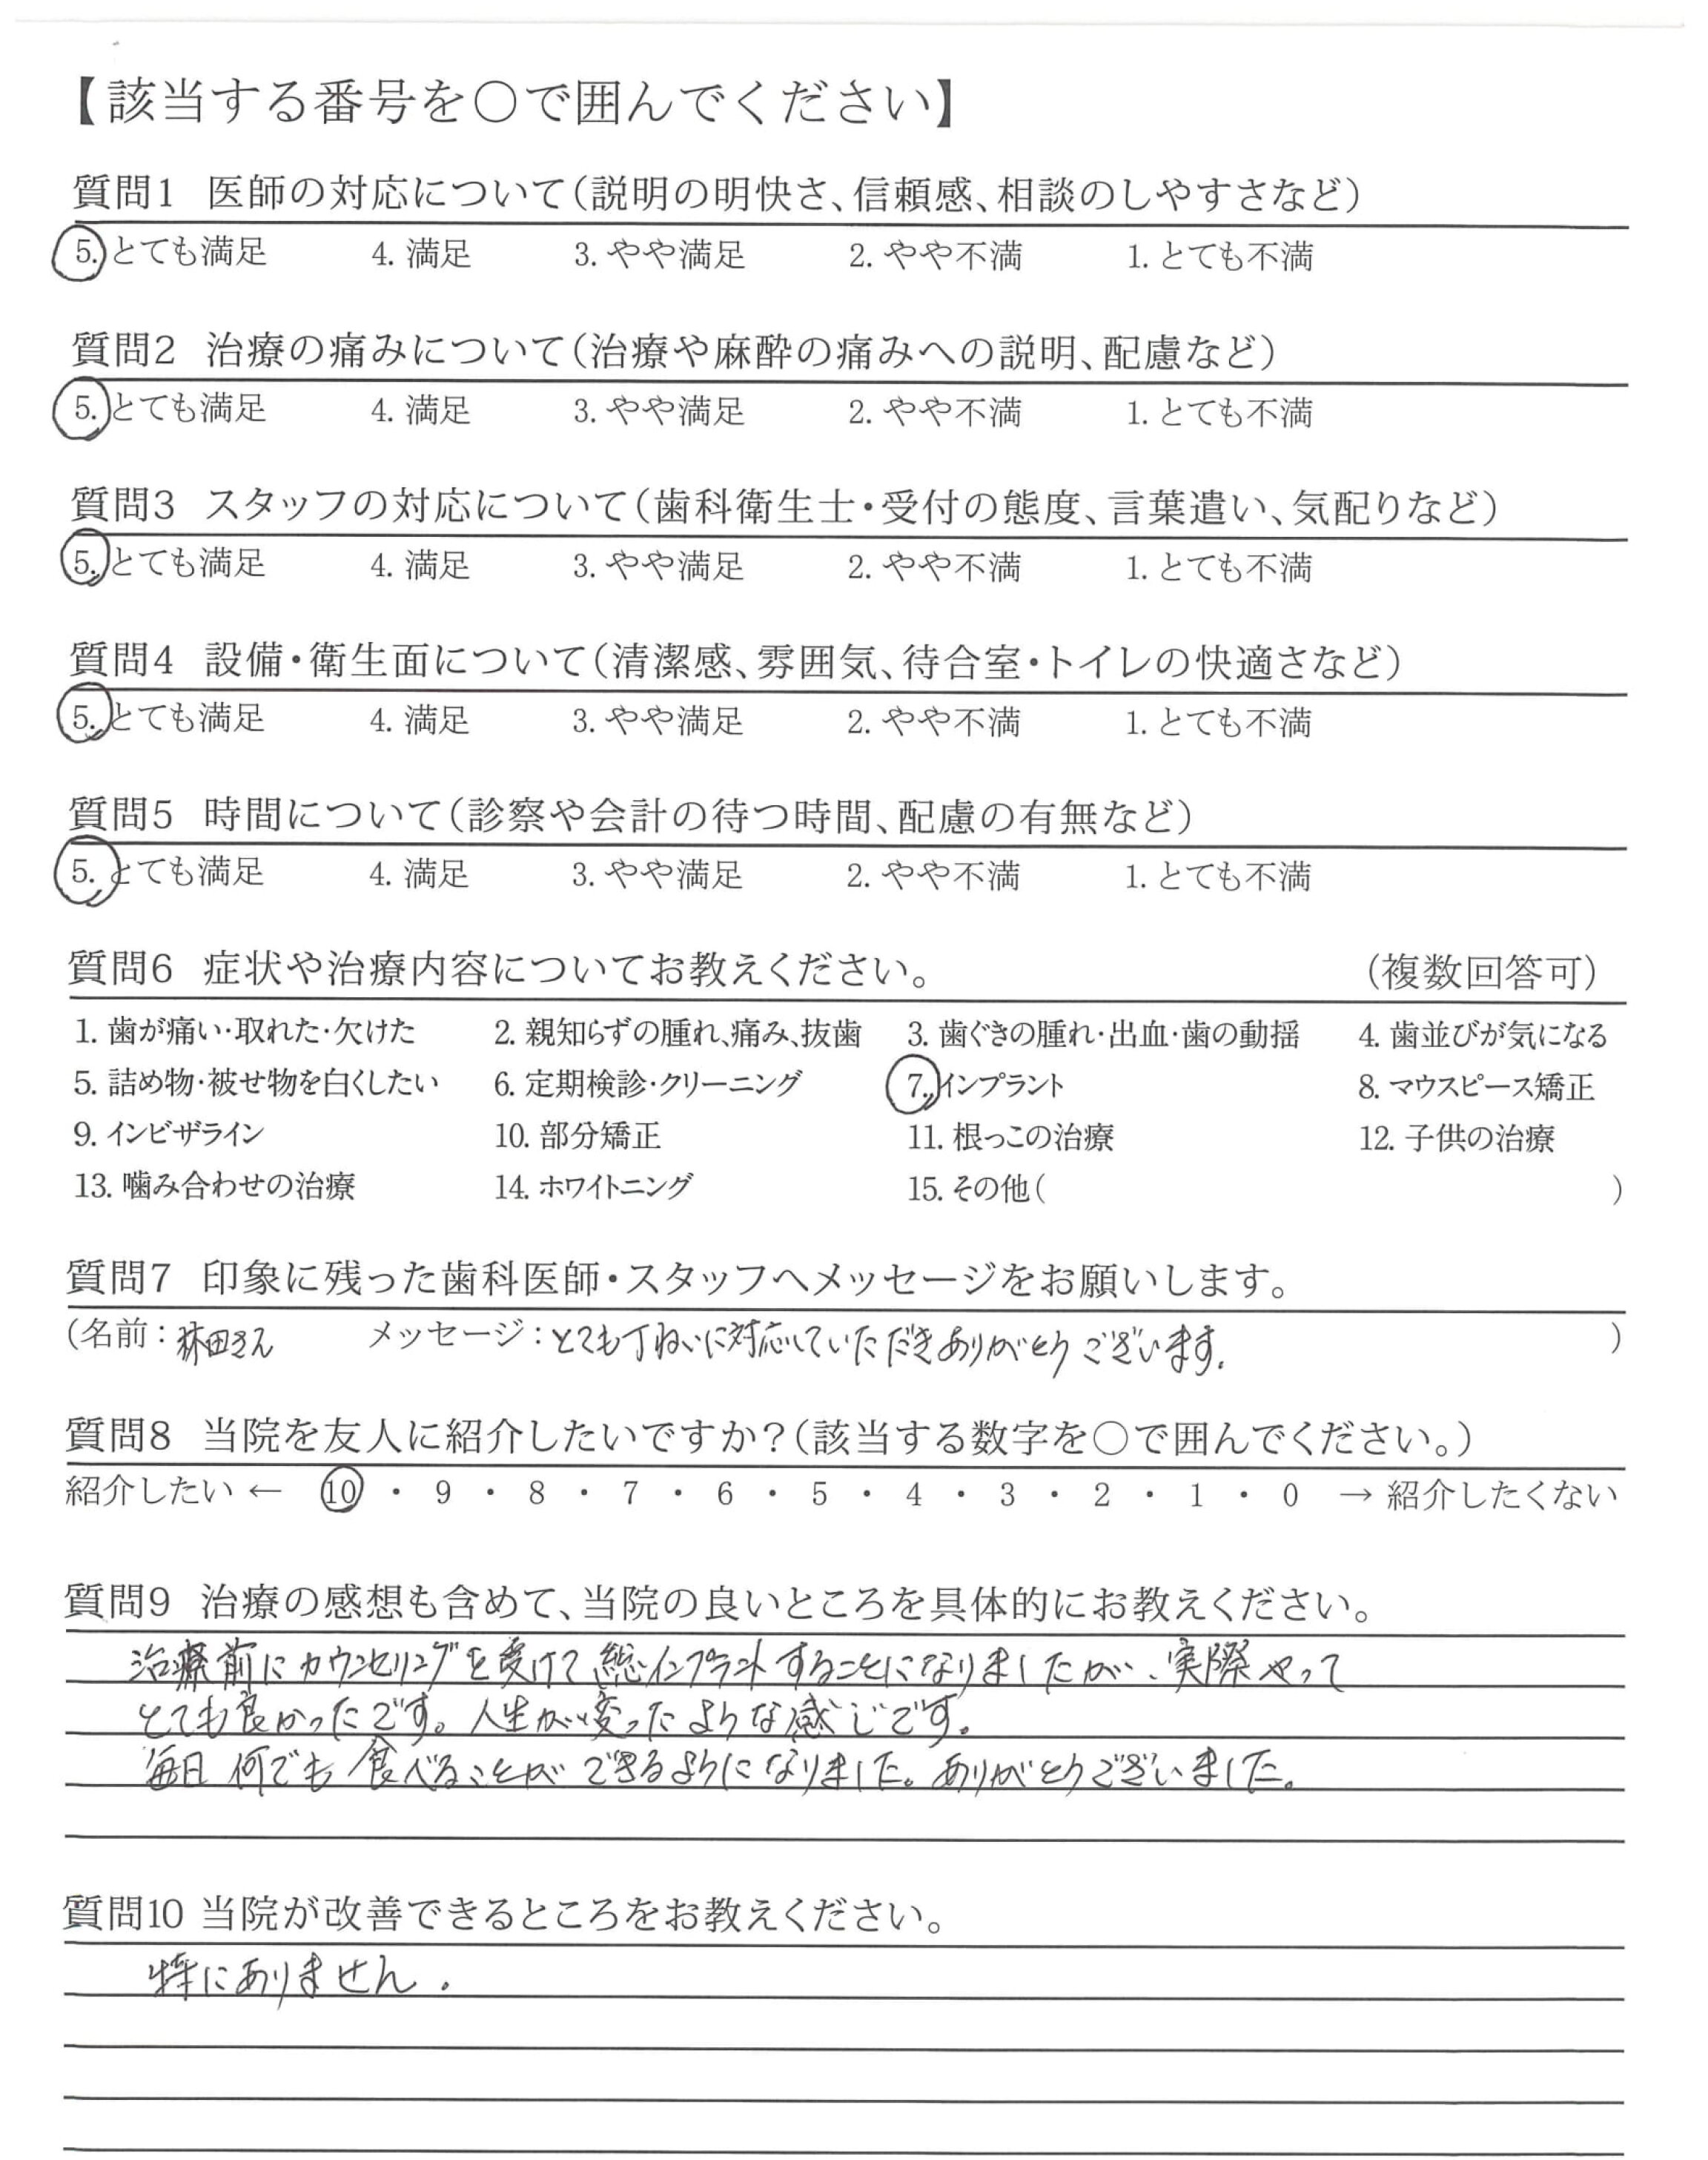 【該当する番号を○で囲んでください】
質問1 医師の対応について(説明の明快さ、信頼感、相談のしやすさなど)
5. とても満足 4. 満足 3. やや満足 2. やや不満 1. とても不満
質問2 治療の痛みについて(治療や麻酔の痛みへの説明、配慮など)
5. とても満足 4. 満足 3. やや満足 2. やや不満 1. とても不満
質問3 スタッフの対応について(歯科衛生士・受付の態度、言葉遣い、気配りなど)
5. とても満足 4. 満足 3. やや満足 2. やや不満 1. とても不満
質問4 設備・衛生面について(清潔感、雰囲気、待合室・トイレの快適さなど)
5. とても満足 4. 満足 3. やや満足 2. やや不満 1. とても不満
質問5 時間について(診察や会計の待つ時間、配慮の有無など)
5. とても満足 4. 満足 3. やや満足 2. やや不満 1. とても不満
質問6 症状や治療内容についてお教えください。 (複数回答可)
1. 歯が痛い・取れた・欠けた 2. 親知らずの腫れ、痛み、抜歯 3. 歯ぐきの腫れ・出血・歯の動揺 4. 歯並びが気になる
5. 詰め物・被せ物を白くしたい 6. 定期検診・クリーニング 7. インプラント 8. マウスピース矯正
9. インビザライン 10. 部分矯正 11. 根っこの治療 12. 子供の治療
13. 噛み合わせの治療 14. ホワイトニング 15. その他( )
質問7 印象に残った歯科医師・スタッフへメッセージをお願いします。
(名前: 林田さん メッセージ: とても丁ねいに対応していただきありがとうございます. )
質問8 当院を友人に紹介したいですか?(該当する数字を○で囲んでください。)
紹介したい ← 10 ・ 9 ・ 8 ・ 7 ・ 6 ・ 5 ・ 4 ・ 3 ・ 2 ・ 1 ・ 0 → 紹介したくない
質問9 治療の感想も含めて、当院の良いところを具体的にお教えください。
治療前にカウンセリングを受けて総インプラントすることになりましたが、実際やって
とても良かったです。人生が変ったような感じです。
毎日何でも食べることができるようになりました。ありがとうございました。
質問10 当院が改善できるところをお教えください。
特にありません.